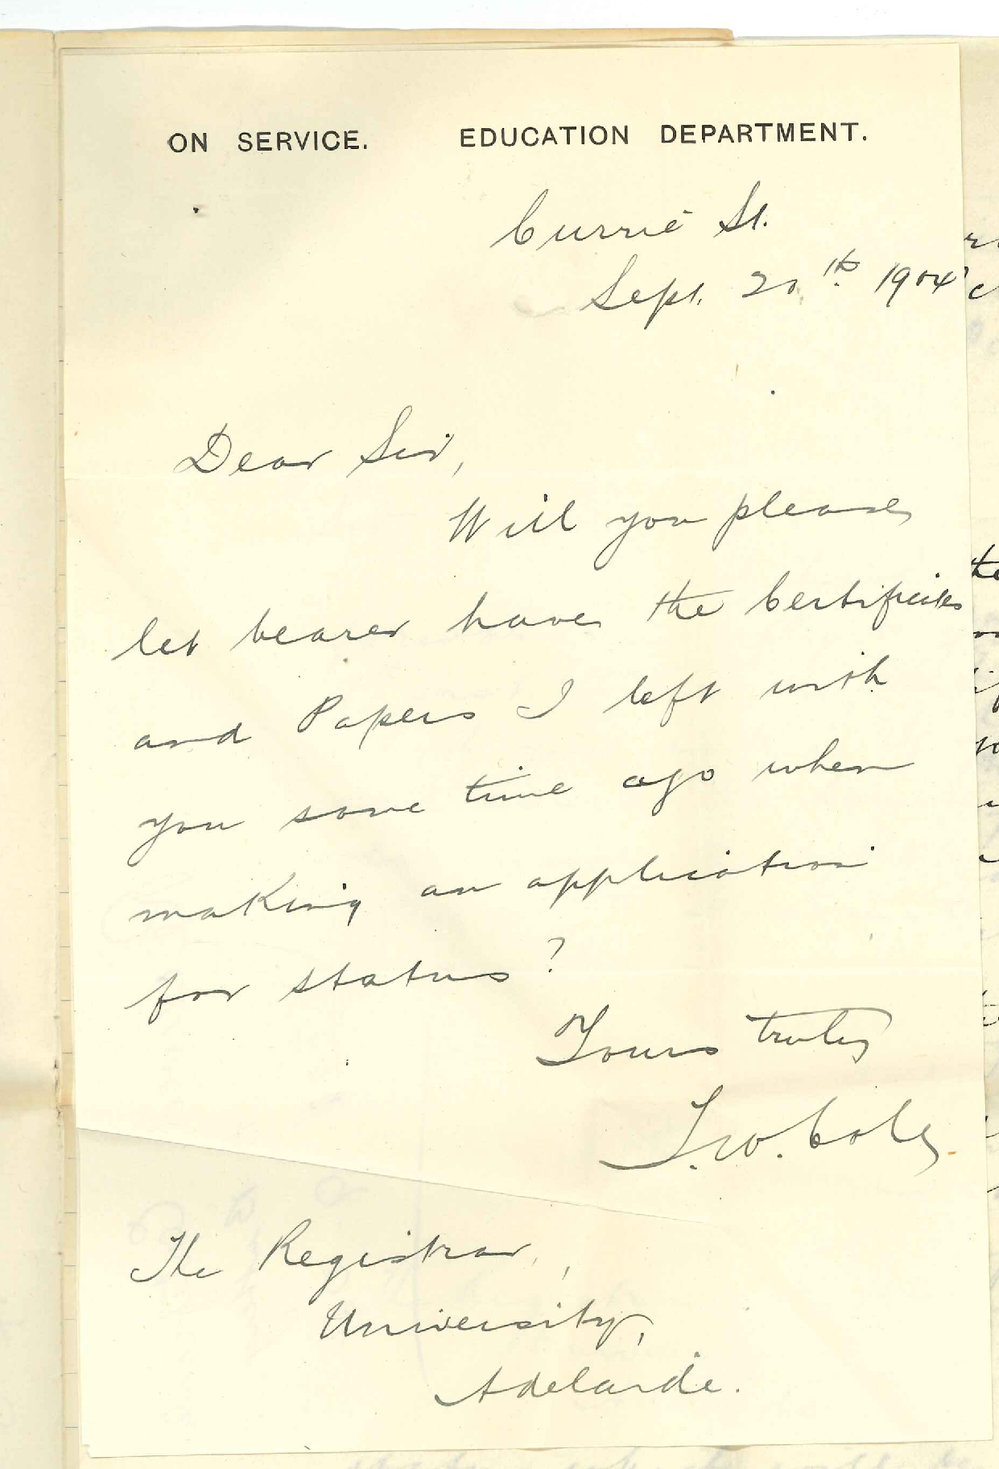 ON SERVICE. EDUCATION DEPARTMENT.
Currie St.
Sept. 20th. 1904
Dear Sir,
Will you please
let bearer have the Certificates
and Papers I left with
you some time ago when
making an application
for status?
Yours truly
T.W. Cole
The Registrar,
University,
Adelaide.